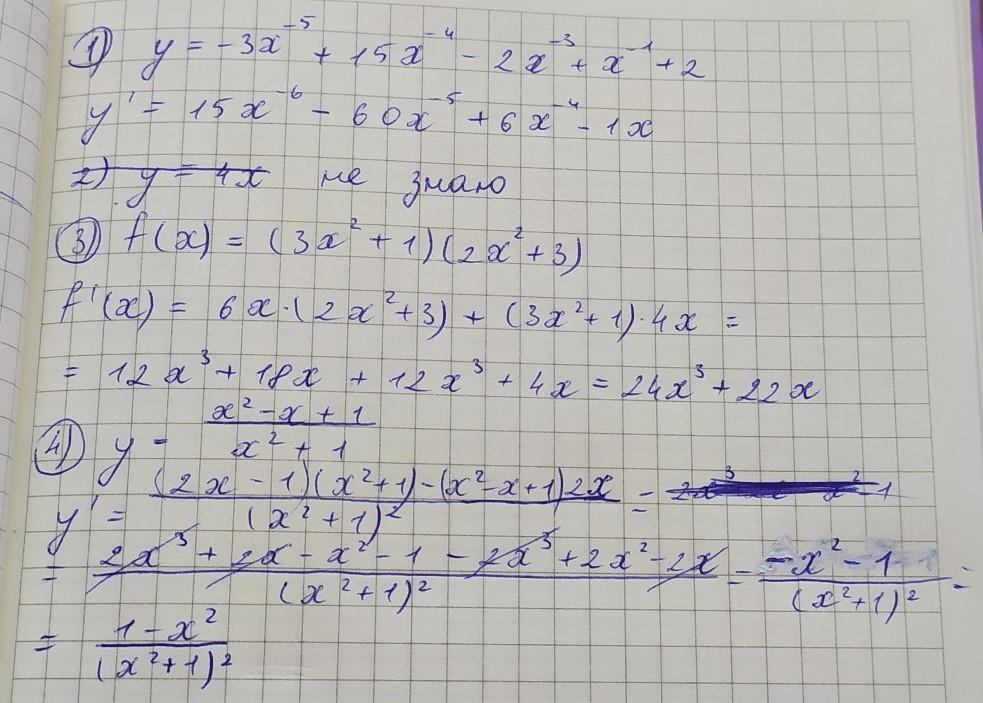 1) y = -3x⁻⁵ + 15x⁻⁴ - 2x⁻³ + x⁻¹ + 2
y' = 15x⁻⁶ - 60x⁻⁵ + 6x⁻⁴ - 1x
2) y = 4x не знаю
3) f(x) = (3x² + 1)(2x² + 3)
f'(x) = 6x·(2x² + 3) + (3x² + 1)·4x =
= 12x³ + 18x + 12x³ + 4x = 24x³ + 22x
4) y = (x² - x + 1)/(x² + 1)
y' = ((2x - 1)(x² + 1) - (x² - x + 1)2x)/(x² + 1)² =
= (2x³ + 2x - x² - 1 - 2x³ + 2x² - 2x)/(x² + 1)² = (-x² - 1)/(x² + 1)² =
= (1 - x²)/(x² + 1)²